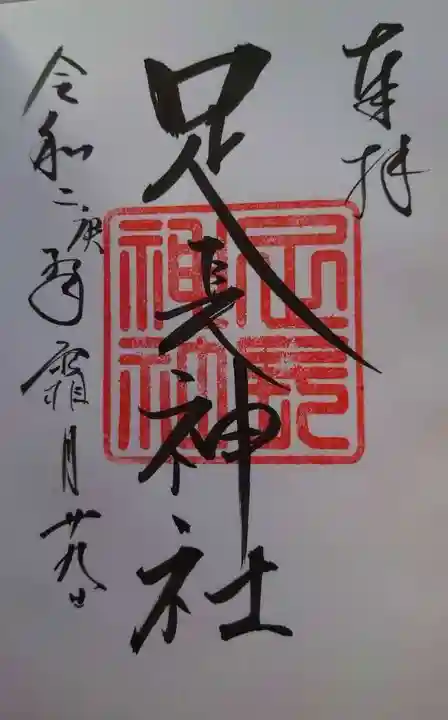 奉拝
足長神社
足長神社
令和二庚子霜月廿九日